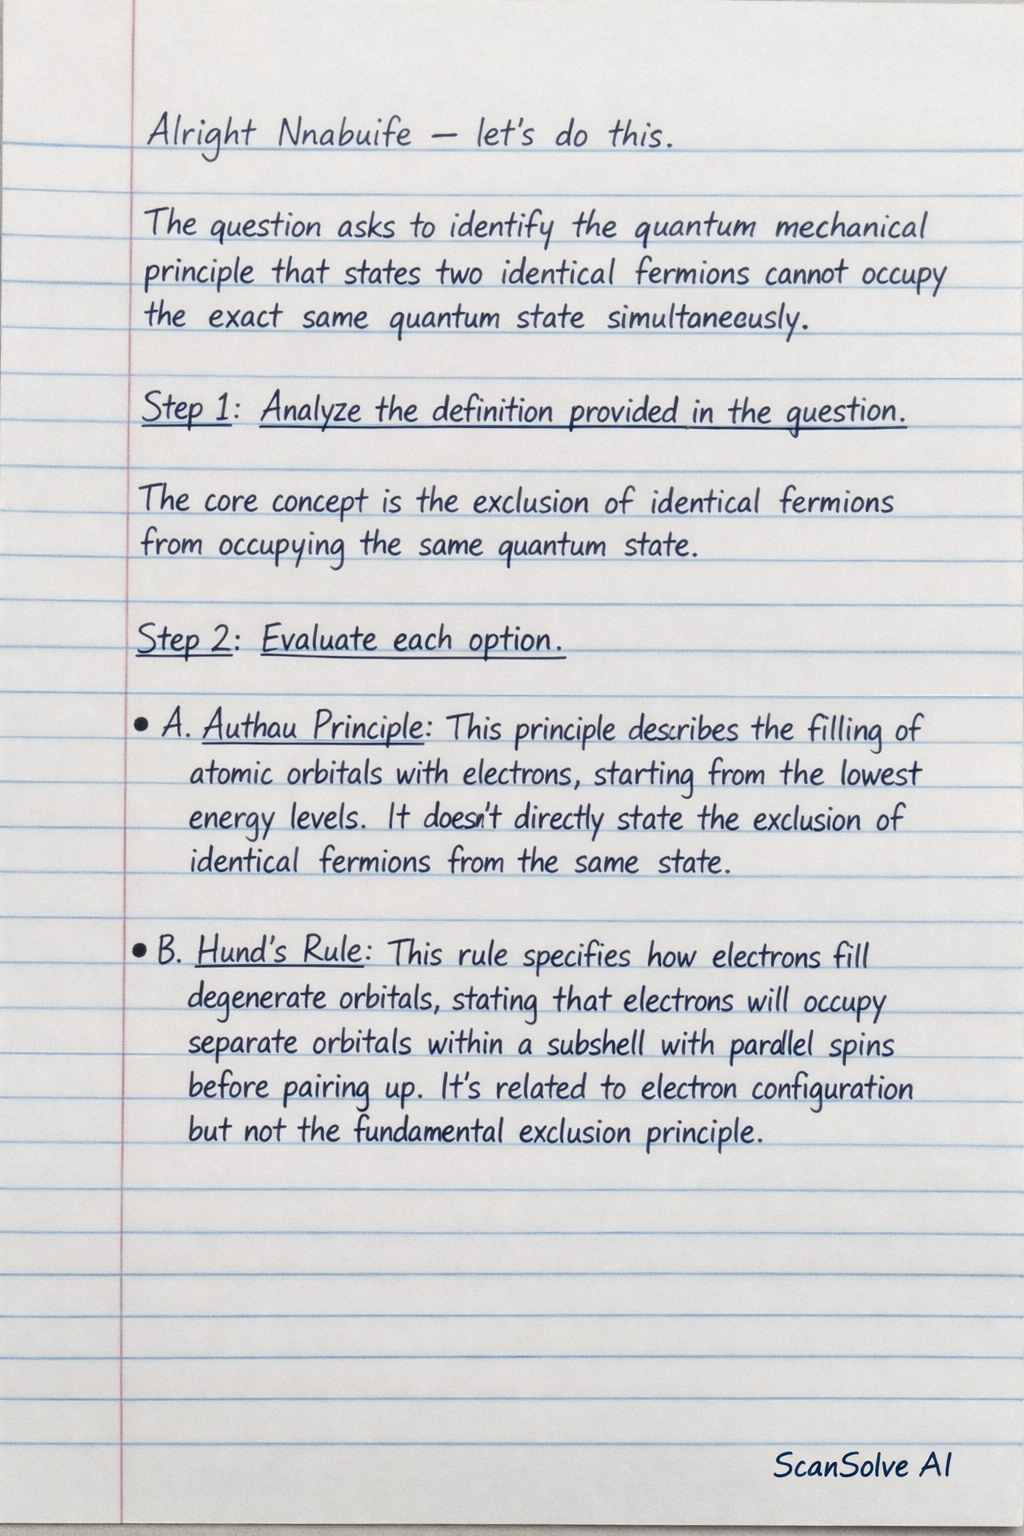 Alright Nnabuife – let's do this.
The question asks to identify the quantum mechanical
principle that states two identical fermions cannot occupy
the exact same quantum state simultaneously.
Step 1: Analyze the definition provided in the question.
The core concept is the exclusion of identical fermions
from occupying the same quantum state.
Step 2: Evaluate each option.
• A. Authau Principle: This principle describes the filling of
atomic orbitals with electrons, starting from the lowest
energy levels. It doesn't directly state the exclusion of
identical fermions from the same state.
• B. Hund's Rule: This rule specifies how electrons fill
degenerate orbitals, stating that electrons will occupy
separate orbitals within a subshell with parallel spins
before pairing up. It's related to electron configuration
but not the fundamental exclusion principle.
ScanSolve AI